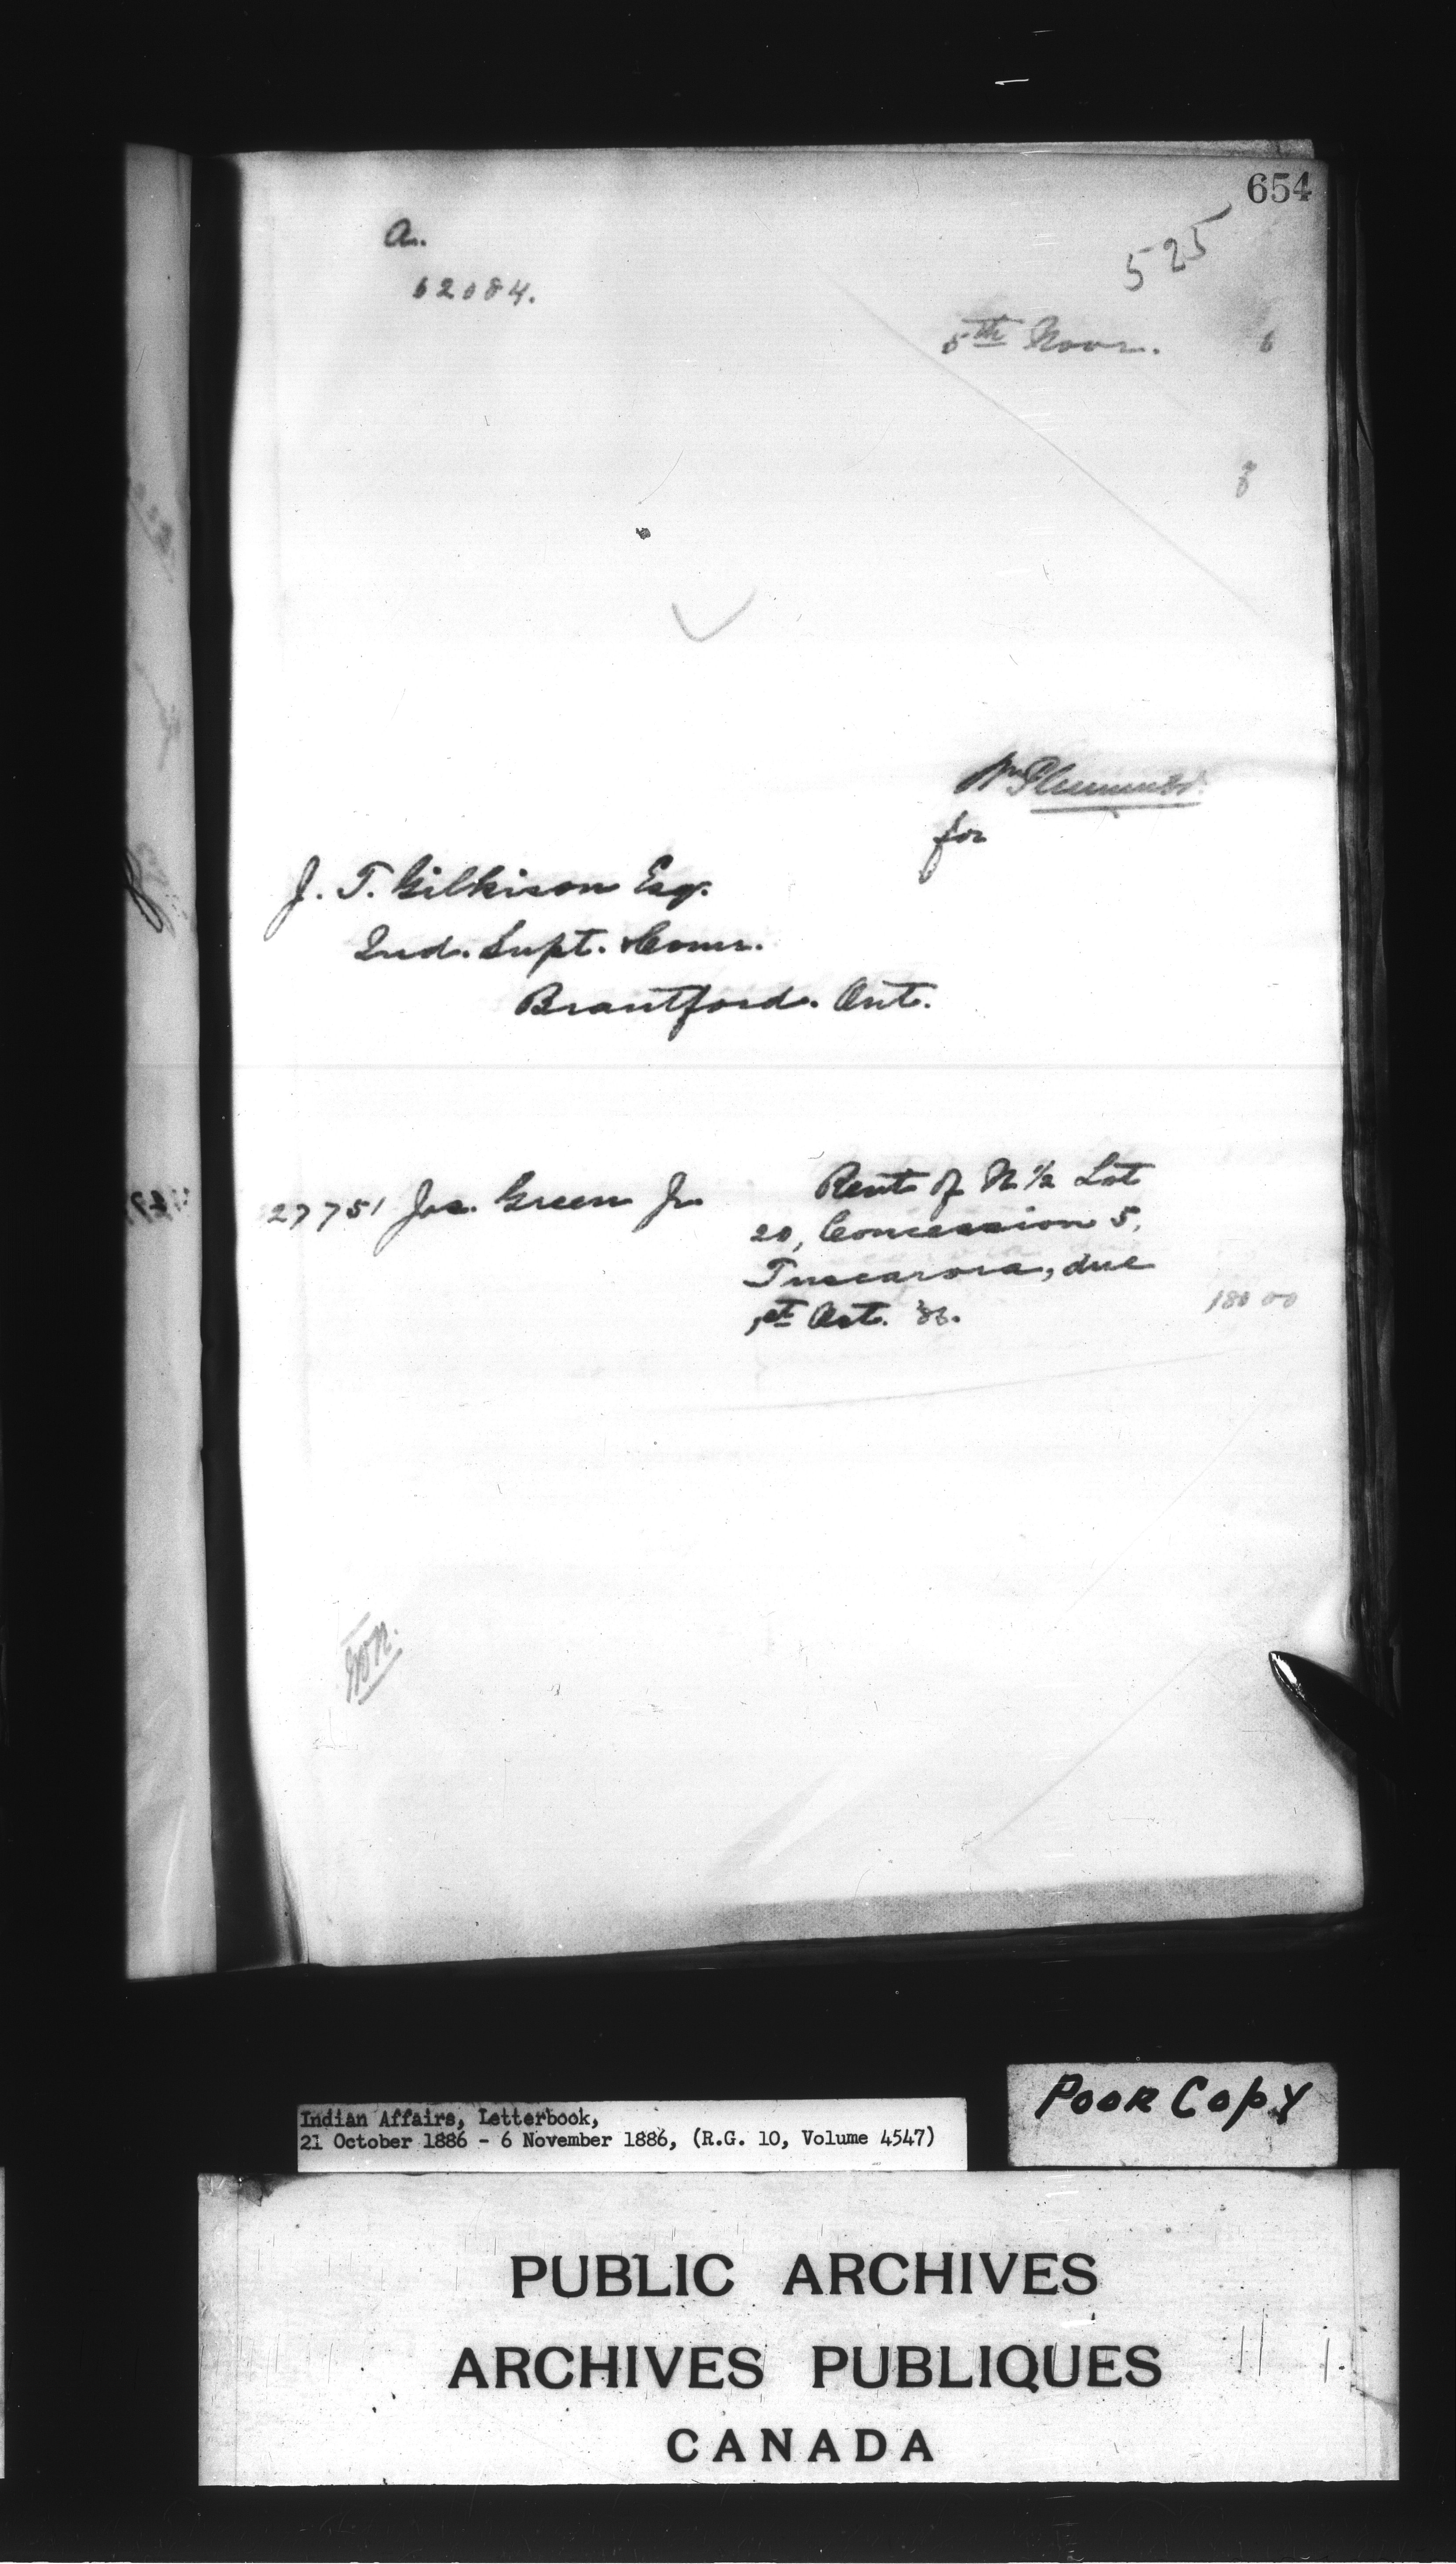 654
525
a.
62084.
5th Novr. 6
8
Wm Plummer
for
J. T. Gilkison Esq.
Ind. Supt. & Comr.
Brantford. Ont.
27751 Jos. Green Jr.
Rent of N. 1/2 Lot
20, Concession 5,
Tuscarora, due
1st Oct. '86.
180 00
Poor Copy
Indian Affairs, Letterbook,
21 October 1886 - 6 November 1886, (R.G. 10, Volume 4547)
PUBLIC ARCHIVES
ARCHIVES PUBLIQUES
CANADA